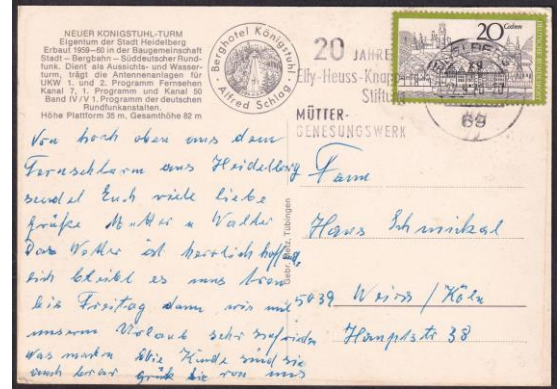 NEUER KÖNIGSTUHL-TURM
Eigentum der Stadt Heidelberg
Erbaut 1959–60 in der Baugemeinschaft
Stadt – Bergbahn – Süddeutscher Rund-
funk. Dient als Aussichts- und Wasser-
turm, trägt die Antennenanlagen für
UKW 1. und 2. Programm Fernsehen
Kanal 7, 1. Programm und Kanal 50
Band IV/V 1. Programm der deutschen
Rundfunkanstalten.
Höhe Plattform 35 m, Gesamthöhe 82 m
Berghotel Königstuhl
Alfred Schlag
20 JAHRE
Elly-Heuss-Knapp-
Stiftung
MÜTTER-
GENESUNGSWERK
20
69
Von hoch oben aus dem
Fernsehturm aus Heidelberg
sendet Euch viele liebe
Grüße Mutter u Walter
Das Wetter ist herrlich
bis Freitag dann wir mit
unserem Urlaub sehr zufrieden
was machen die Kinder sind sie
auch brav grüß sie von uns
Gebr. Metz, Tübingen
Fam
Hans Schmickal
5039 Weiss / Köln
Hauptstr 38